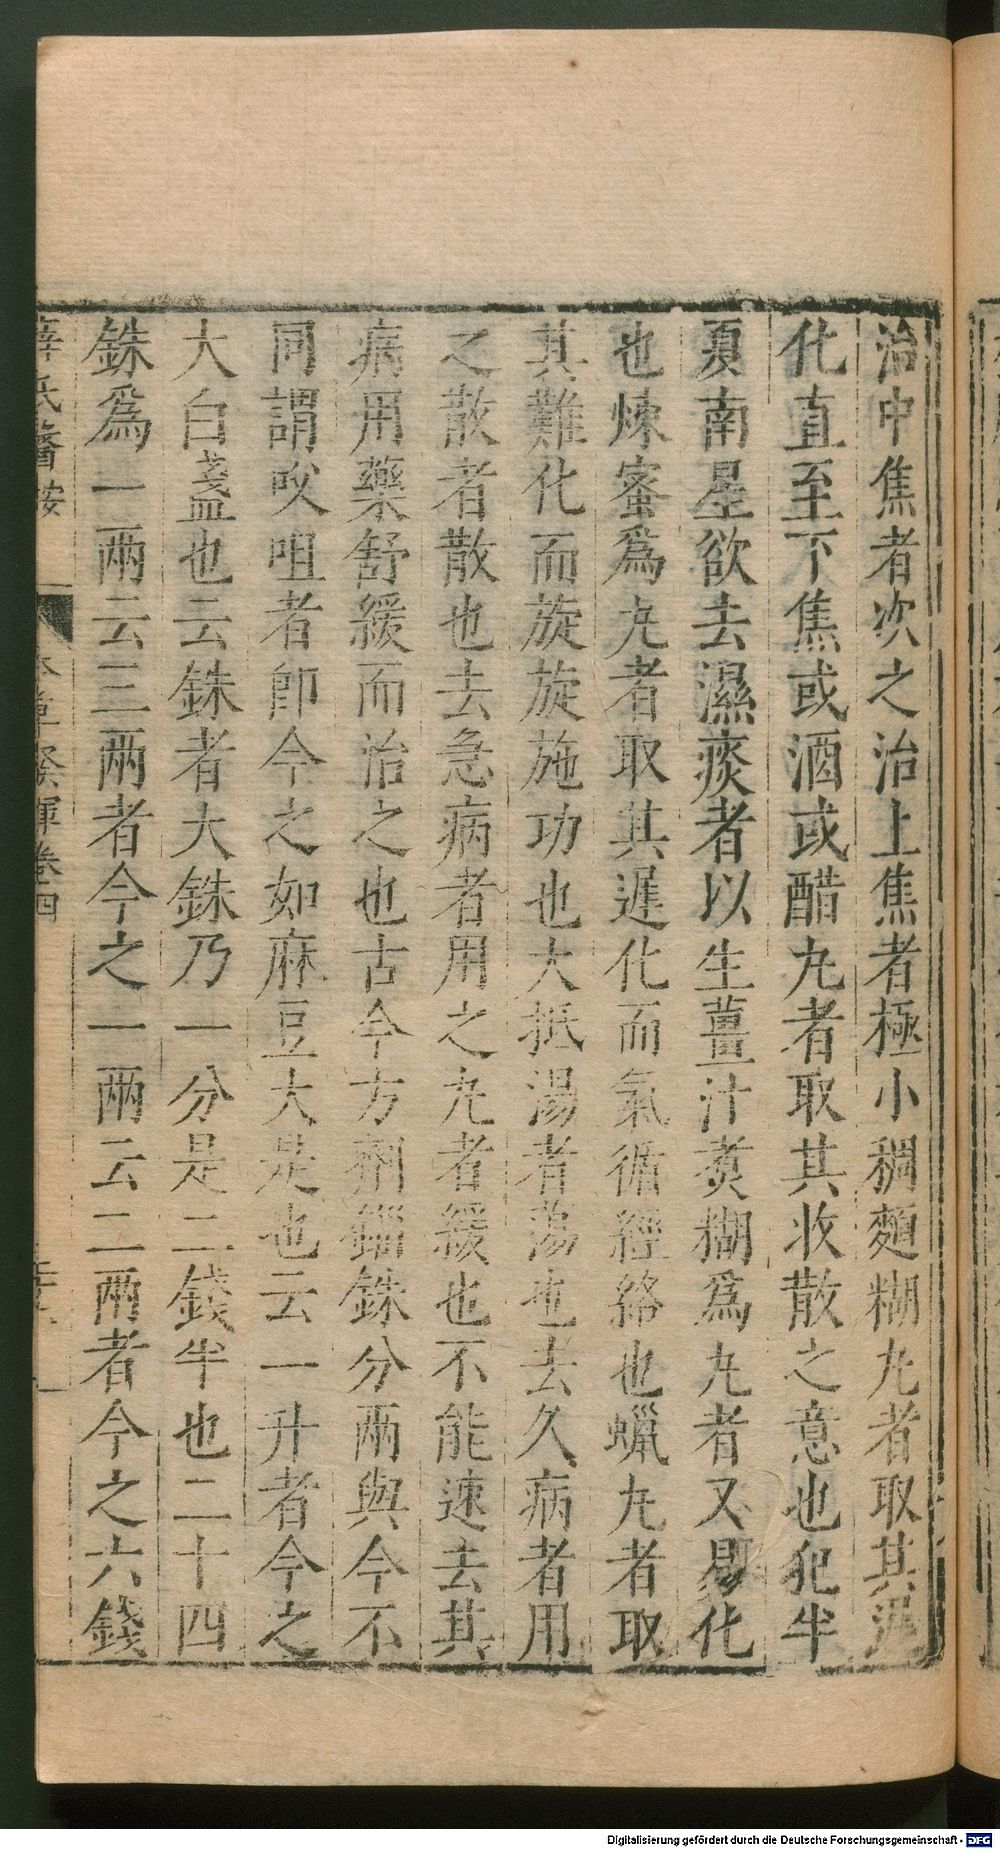 治中焦者次之治上焦者極小稠麵糊丸者取其遲
化直至下焦或酒或醋丸者取其收散之意也犯半
夏南星欲去濕痰者以生薑汁煑糊爲丸者又易化
也煉蜜爲丸者取其遲化而氣循經絡也蠟丸者取
其難化而旋旋施功也大抵湯者蕩也去久病者用
之散者散也去急病者用之丸者緩也不能速去其
病用藥舒緩而治之也古今方劑錙銖分兩與今不
同謂㕮咀者卽今之如麻豆大是也云一升者今之
大白盞也云銖者大銖乃一分是二錢半也二十四
銖爲一兩云三兩者今之一兩云二兩者今之六錢
薛氏醫按
本草發揮卷四
Digitalisierung gefördert durch die Deutsche Forschungsgemeinschaft - DFG